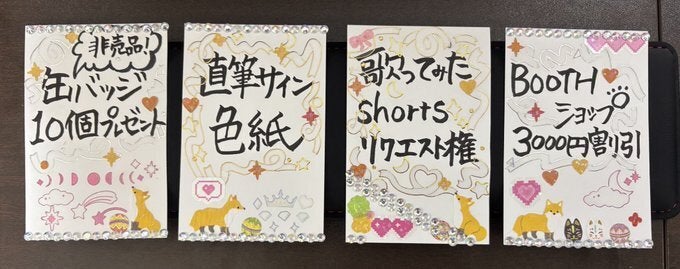 非売品!
缶バッジ
10個プレゼント
直筆サイン
色紙
歌ってみた
shorts
リクエスト権
BOOTH
ショップ
3000円割引